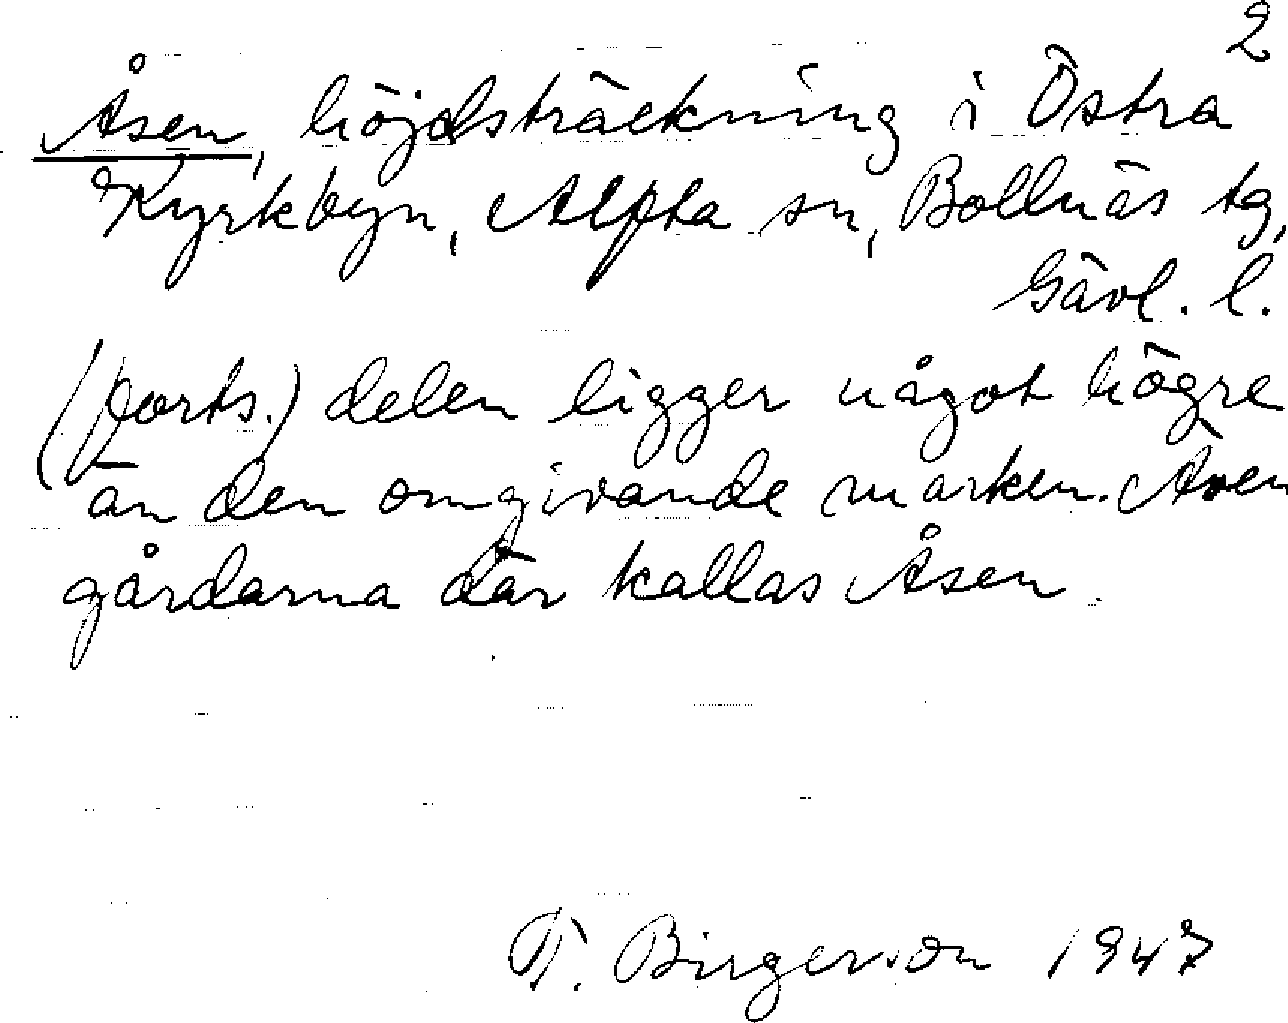 2
Åsen, höjdsträckning i Östra
Kyrkbyn, Alfta sn, Bollnäs tg,
Gävl. l.
(forts.) delen ligger något högre
än den omgivande marken. Även
gårdarna där kallas Åsen.
F. Birgerson 1947